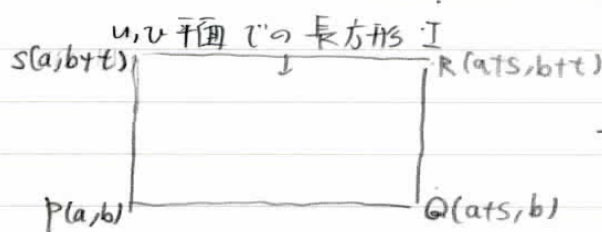 u,v 平面 での 長方形 I
S(a,b+t)
R(a+s,b+t)
P(a,b)
Q(a+s,b)